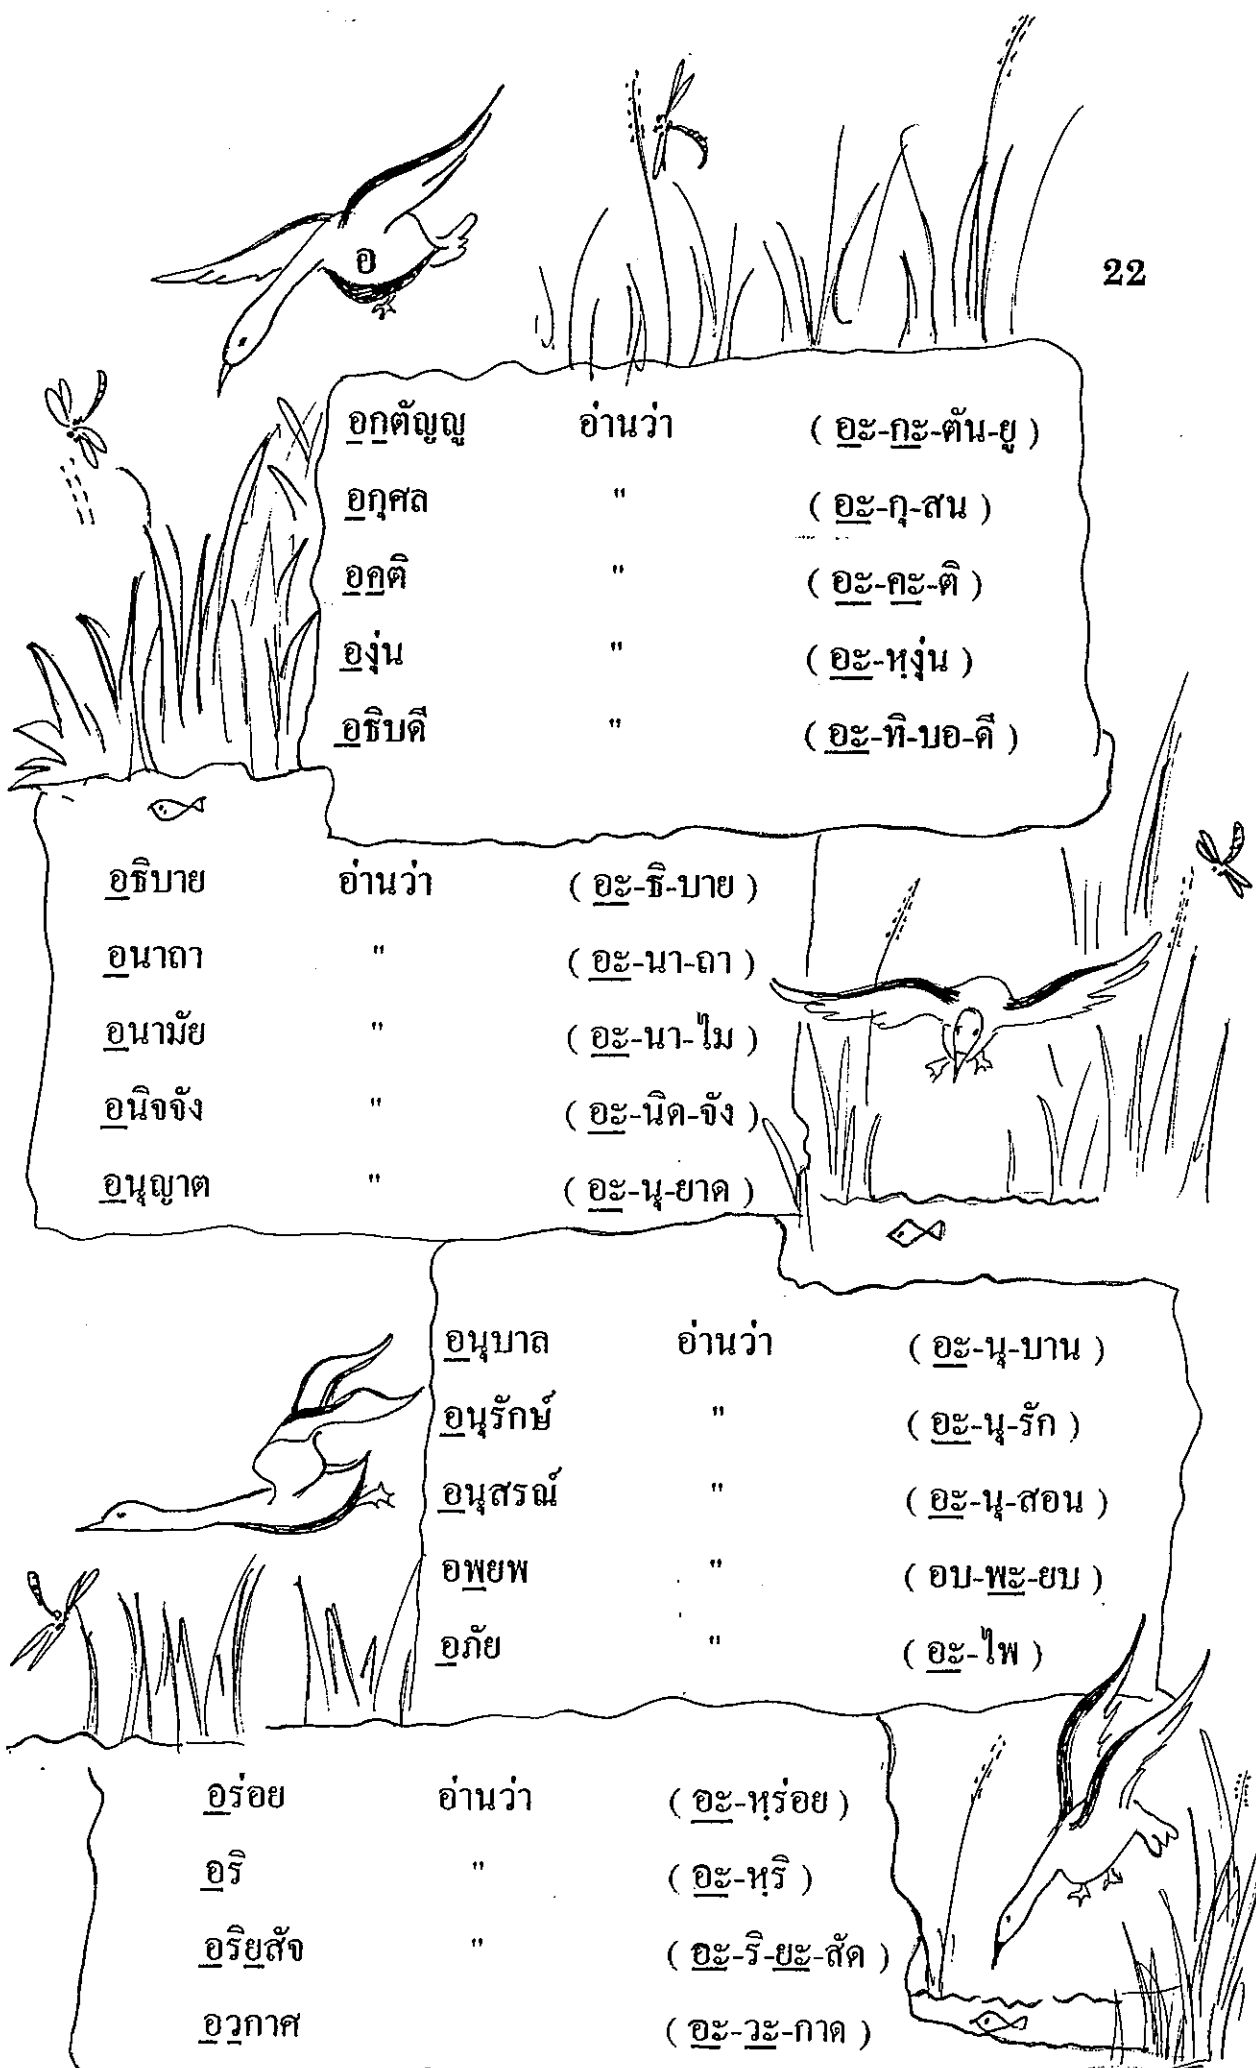 อ
22
อกตัญญู อ่านว่า ( อะ-กะ-ตัน-ยู )
อกุศล " ( อะ-กุ-สน )
อคติ " ( อะ-คะ-ติ )
องุ่น " ( อะ-หฺงุ่น )
อธิบดี " ( อะ-ทิ-บอ-ดี )
อธิบาย อ่านว่า ( อะ-ธิ-บาย )
อนาถา " ( อะ-นา-ถา )
อนามัย " ( อะ-นา-ไม )
อนิจจัง " ( อะ-นิด-จัง )
อนุญาต " ( อะ-นุ-ยาด )
อนุบาล อ่านว่า ( อะ-นุ-บาน )
อนุรักษ์ " ( อะ-นุ-รัก )
อนุสรณ์ " ( อะ-นุ-สอน )
อพยพ " ( อบ-พะ-ยบ )
อภัย " ( อะ-ไพ )
อร่อย อ่านว่า ( อะ-หฺร่อย )
อริ " ( อะ-หฺริ )
อริยสัจ " ( อะ-ริ-ยะ-สัด )
อวกาศ ( อะ-วะ-กาด )